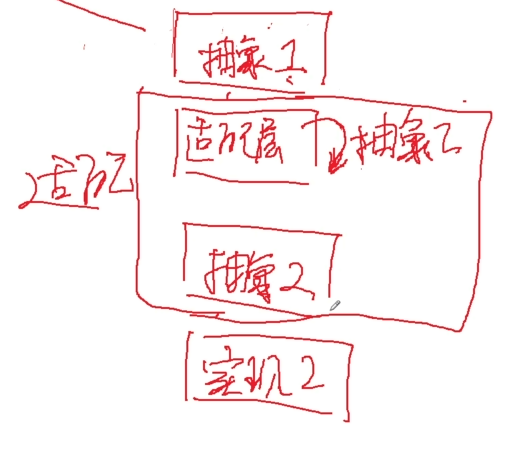 抽象1
适配层 抽象2
适配
抽象2
实现2